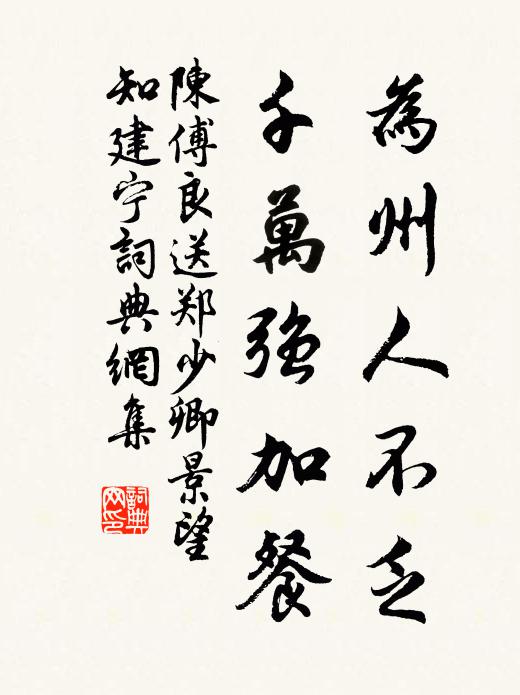 為州人不乏
千萬強加餐
陳傅良送郑少卿景望
知建宁詞典網集
詞典
网印